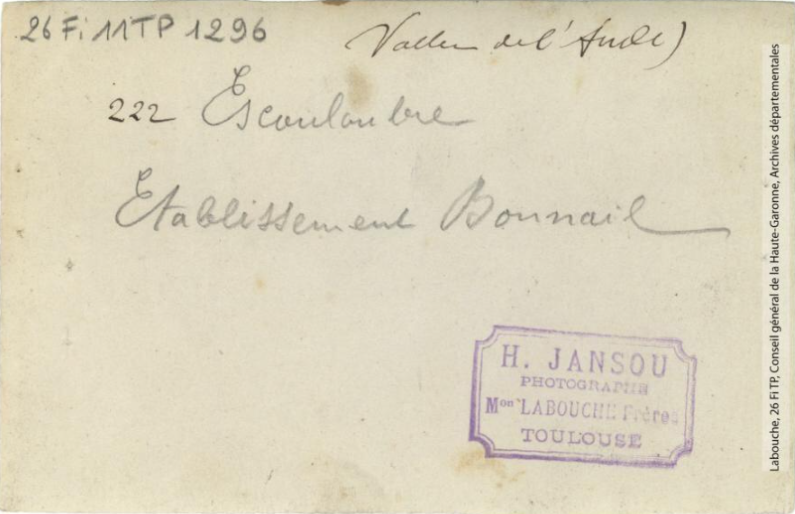 26 Fi 11TP 1296
Vallee de l'Aude)
222 Escouloubre
Etablissement Bonnail
H. JANSOU
PHOTOGRAPHE
Mon LABOUCHE Frères
TOULOUSE
Labouche, 26 Fi TP, Conseil général de la Haute-Garonne, Archives départementales